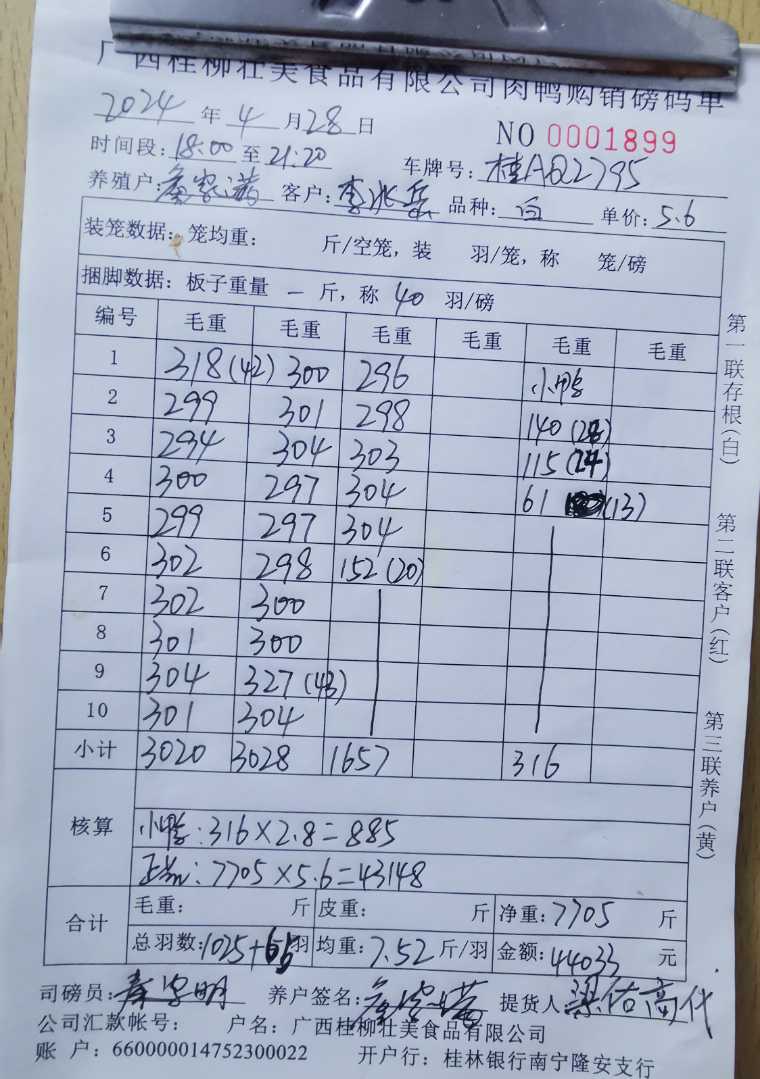 广西桂柳壮美食品有限公司肉鸭购销磅码单
2024年4月28日 NO 0001899
时间段:18:00至21:20 车牌号:桂AQ2795
养殖户: 客户:李冰岳 品种:白 单价:5.6
装笼数据:笼均重: 斤/空笼,装 羽/笼,称 笼/磅
捆脚数据:板子重量 一 斤,称 40 羽/磅
编号 毛重 毛重 毛重 毛重 毛重 毛重
1 318(42) 300 296 小鸭
2 299 301 298 140(28)
3 294 304 303 115(24)
4 300 297 304 61 (13)
5 299 297 304
6 302 298 152(20)
7 302 300
8 301 300
9 304 327(43)
10 301 304
小计 3020 3028 1657 316
核算
小鸭:316×2.8=885
:7705×5.6=43148
合计
毛重: 斤 皮重: 斤 净重:7705 斤
总羽数:1025+65羽 均重:7.52斤/羽 金额:44033元
司磅员: 养户签名: 提货人:
公司汇款帐号: 户名:广西桂柳壮美食品有限公司
账 户:660000014752300022 开户行:桂林银行南宁隆安支行
第一联存根(白)
第二联客户(红)
第三联养户(黄)